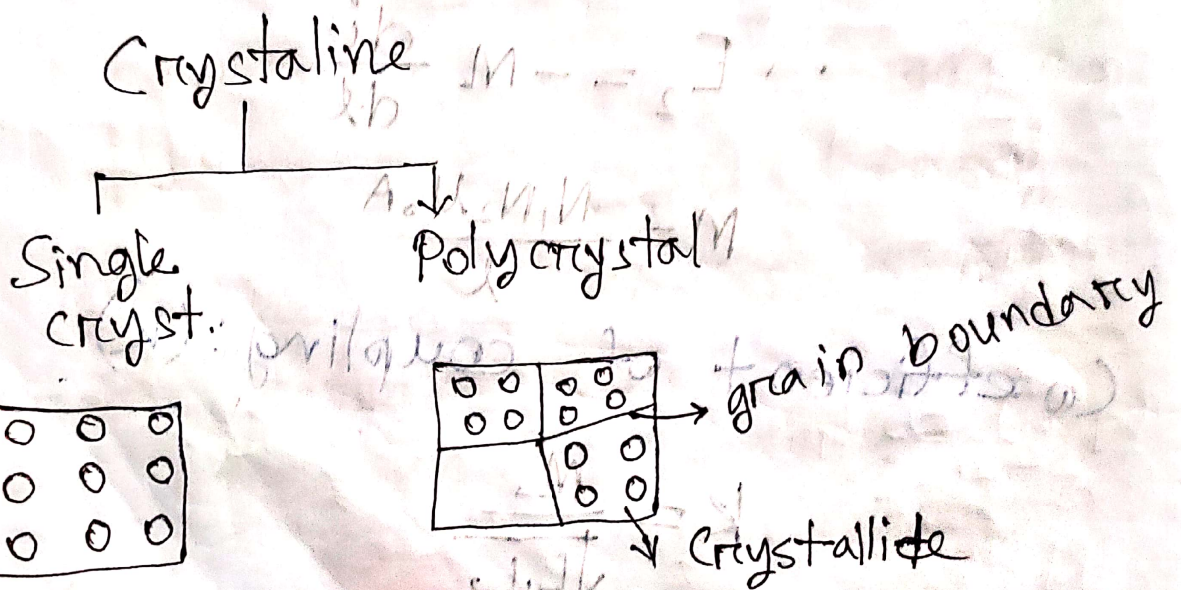 Crystaline
Single
cryst.
Polycrystal
grain boundary
Crystallite